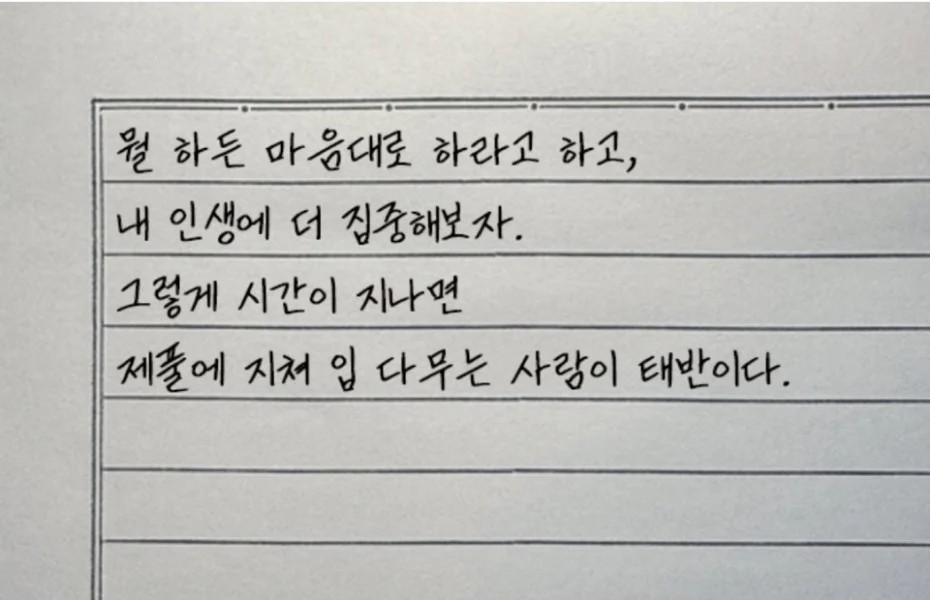 뭘 하든 마음대로 하라고 하고,
내 인생에 더 집중해보자.
그렇게 시간이 지나면
제풀에 지쳐 입 다무는 사람이 태반이다.